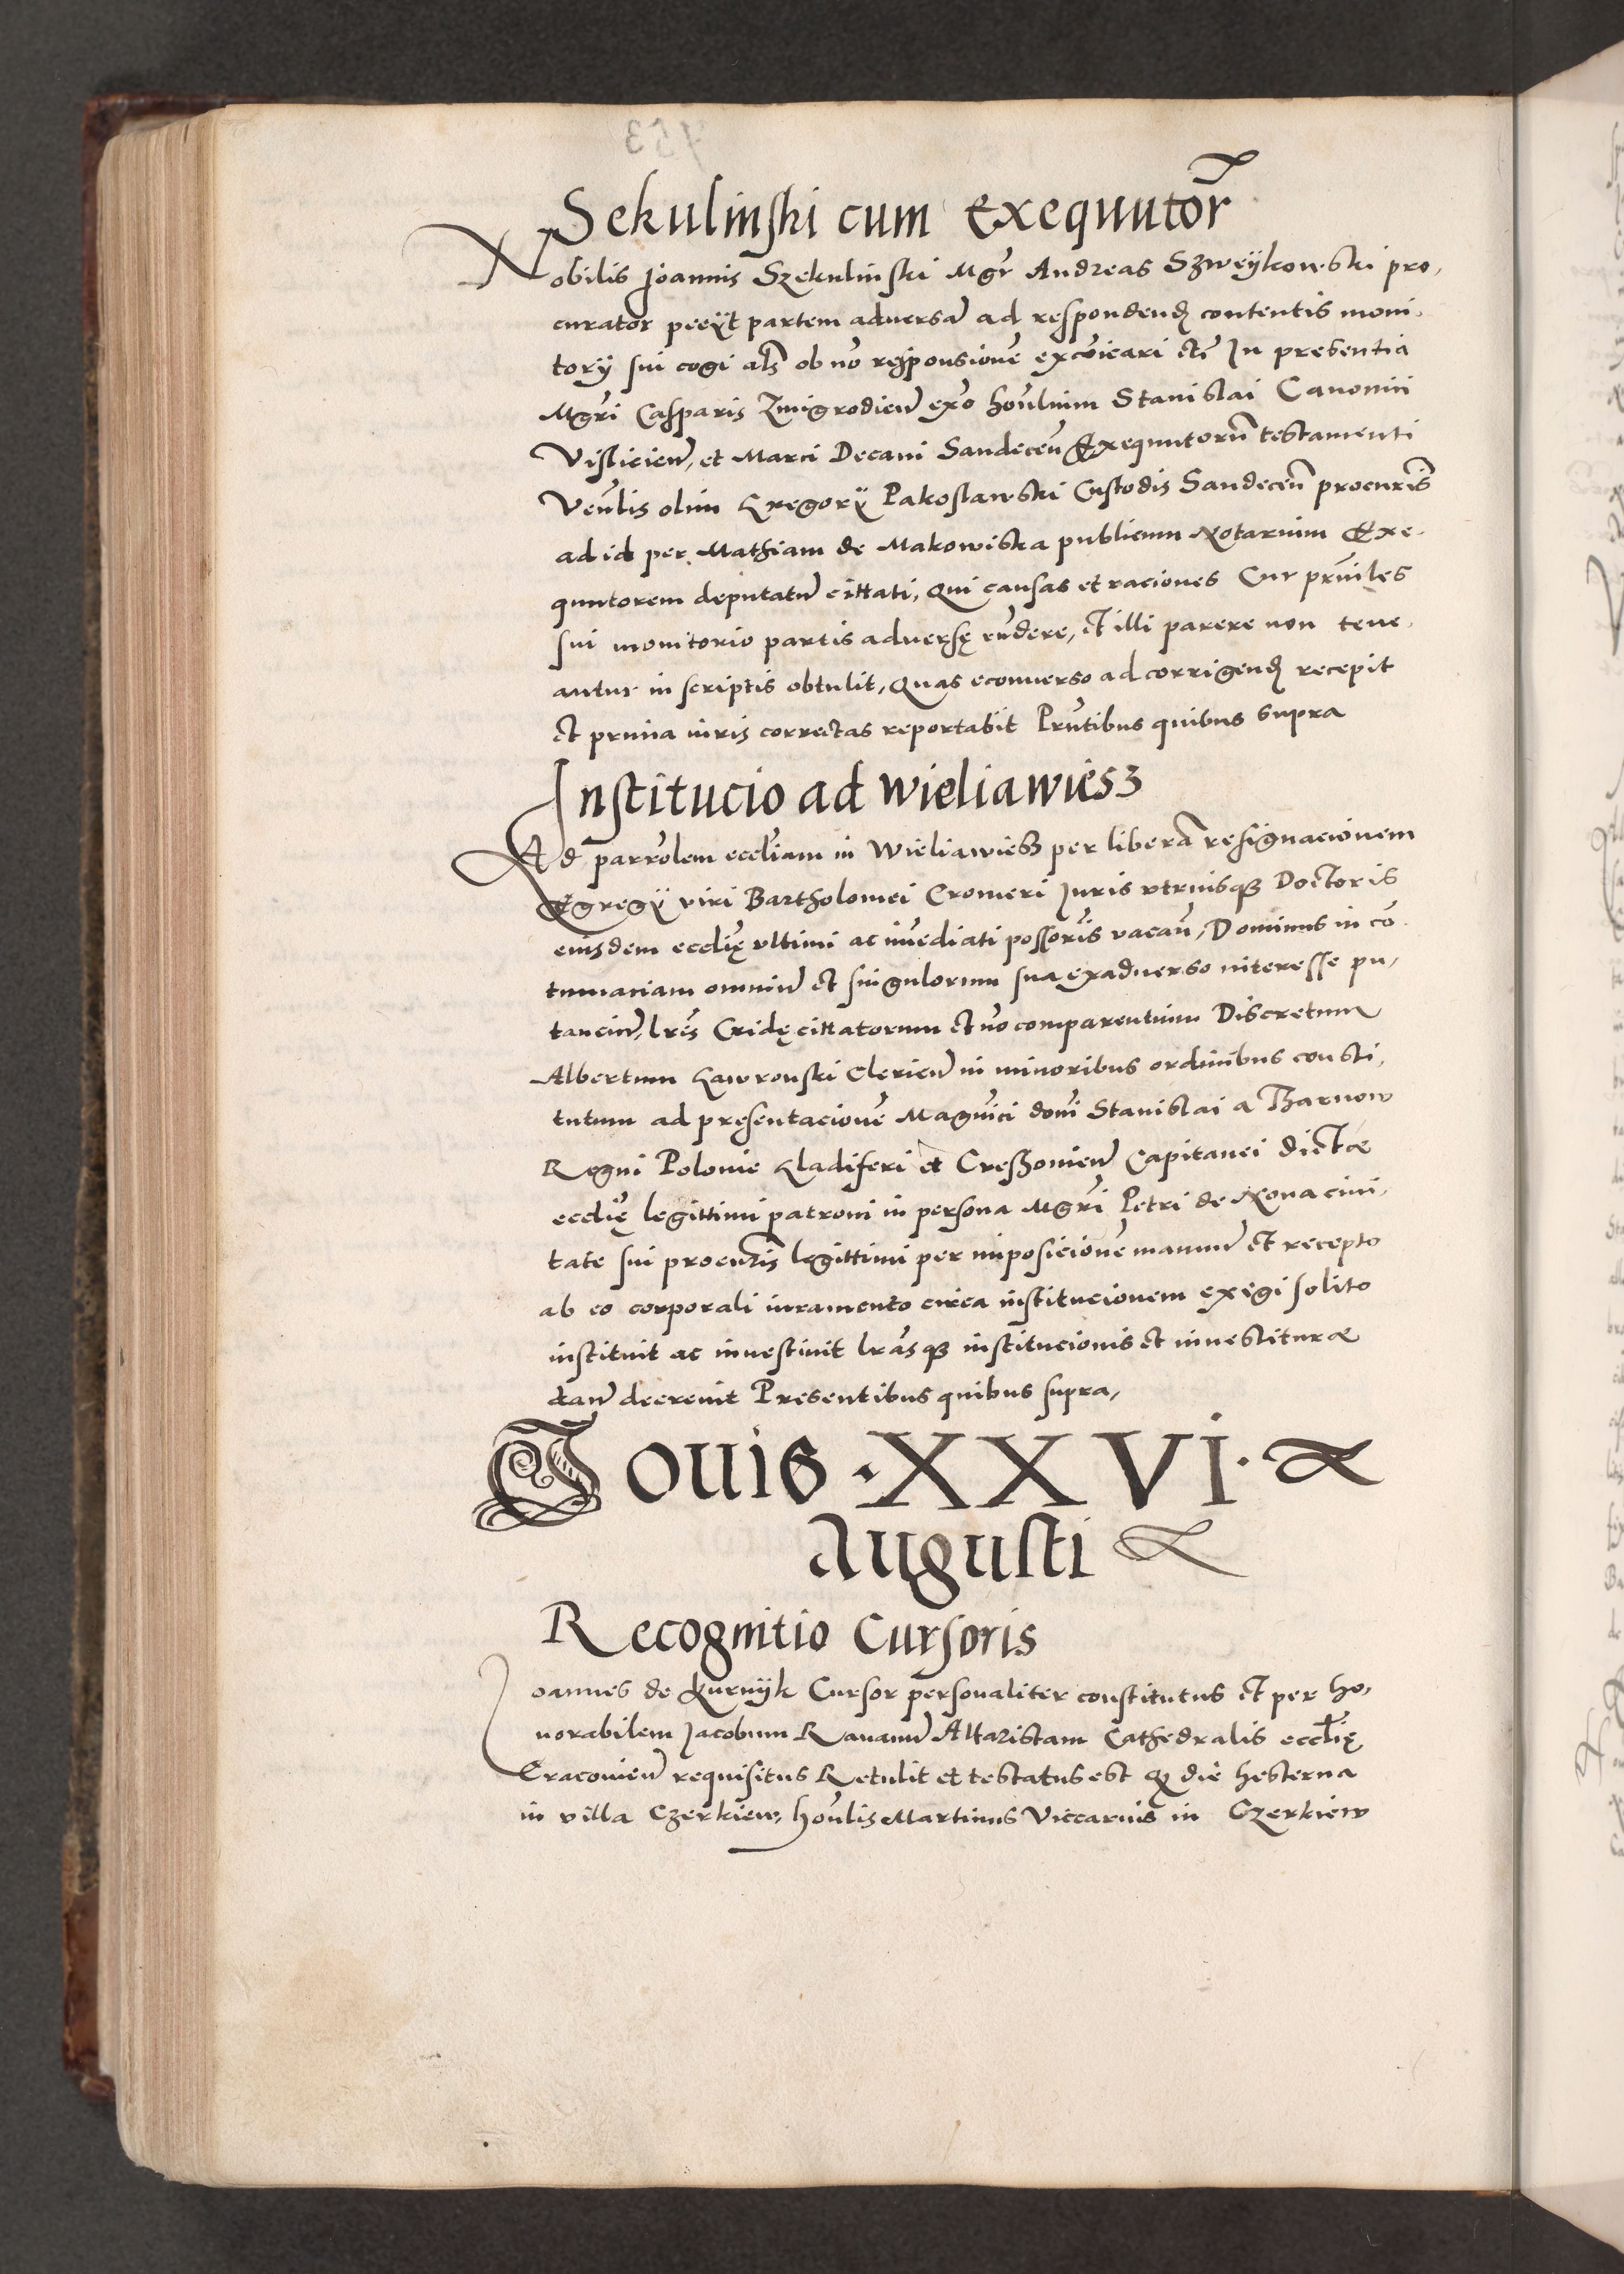 Sekulinski cum Exequutor̃
Nobilis Joannis Szekulinski Mgr̃ Andreas Szweÿkowski pro,
curator peeÿt partem adversã ad respondend̃ contentis moni,
torÿ sui cogi als̃ ob nõ responsionẽ excõicari etc̃ In presentia
Mgr̃i Casparis Zmigrodień exõ hoñlium Stanislai Canonici
Visliciesñ, et Marci Decani Sandeceñ Exequutorũ testamenti
Veñlis olim Gregorÿ Pakoslawski Custodis Sandeceñ procur̃is
ad id per Mathiam de Makowiska publicum Notarium Exe,
quutorem deputatũ cittati, Qui causas et raciones Cur pr̃iñles
sui monitorio partis adversę rñdere, et illi parere non tene,
antur in scriptis obtulit, Quas econverso ad corrigend̃ recepit
et prima iuris correctas reportabit Pr̃ntibus quibus supra
Institucio ad wieliawiesz
Ad parrõlem ecclĩam in Wieliawiesz per liberã resignacionem
Egregÿ viri Bartholomei Cromeri Juris vtriusq̃ Doctoris
eiusdem ecclię ultimi ac imẽdiati possor̃is vacañ, Dominus in cõ
tumaciam omniũ et singulorum sua exadverso interesse pu,
tanciũ, lr̃is Cridę cittatorum et nõ comparentium Discretum
Albertum Gawronski Clericũ in minoribus ordinibus consti,
tutum ad presentacionẽ Magñici doñi Stanislai a Tharnow
Regni Polonie Gladiferi et Creszoviesñ Capitanei dictæ
ecclię legittimi patroni in persona Mgr̃i Petri de Nova civi,
tate sui procur̃is legittimi per imposicionẽ manuũ et recepto
ab eo corporali iuramento circa institucionem exigi solito
instituit ac investivit lr̃asq̃ institucionis et investituræ
dañ decrevit Presentibus quibus supra,
Jouis ·XXVI·
augusti
Recognitio Cursoris
Joannes de Kurnÿk Cursor personaliter constitutus et per ho,
norabilem Jacobum Ravanũ Altaristam Cathedralis ecclię
Cracovień requisitus Retulit et testatus est q̃ die hesterna
in villa Czerkiew, hoñlis Martinus Viccarius in Czerkiew